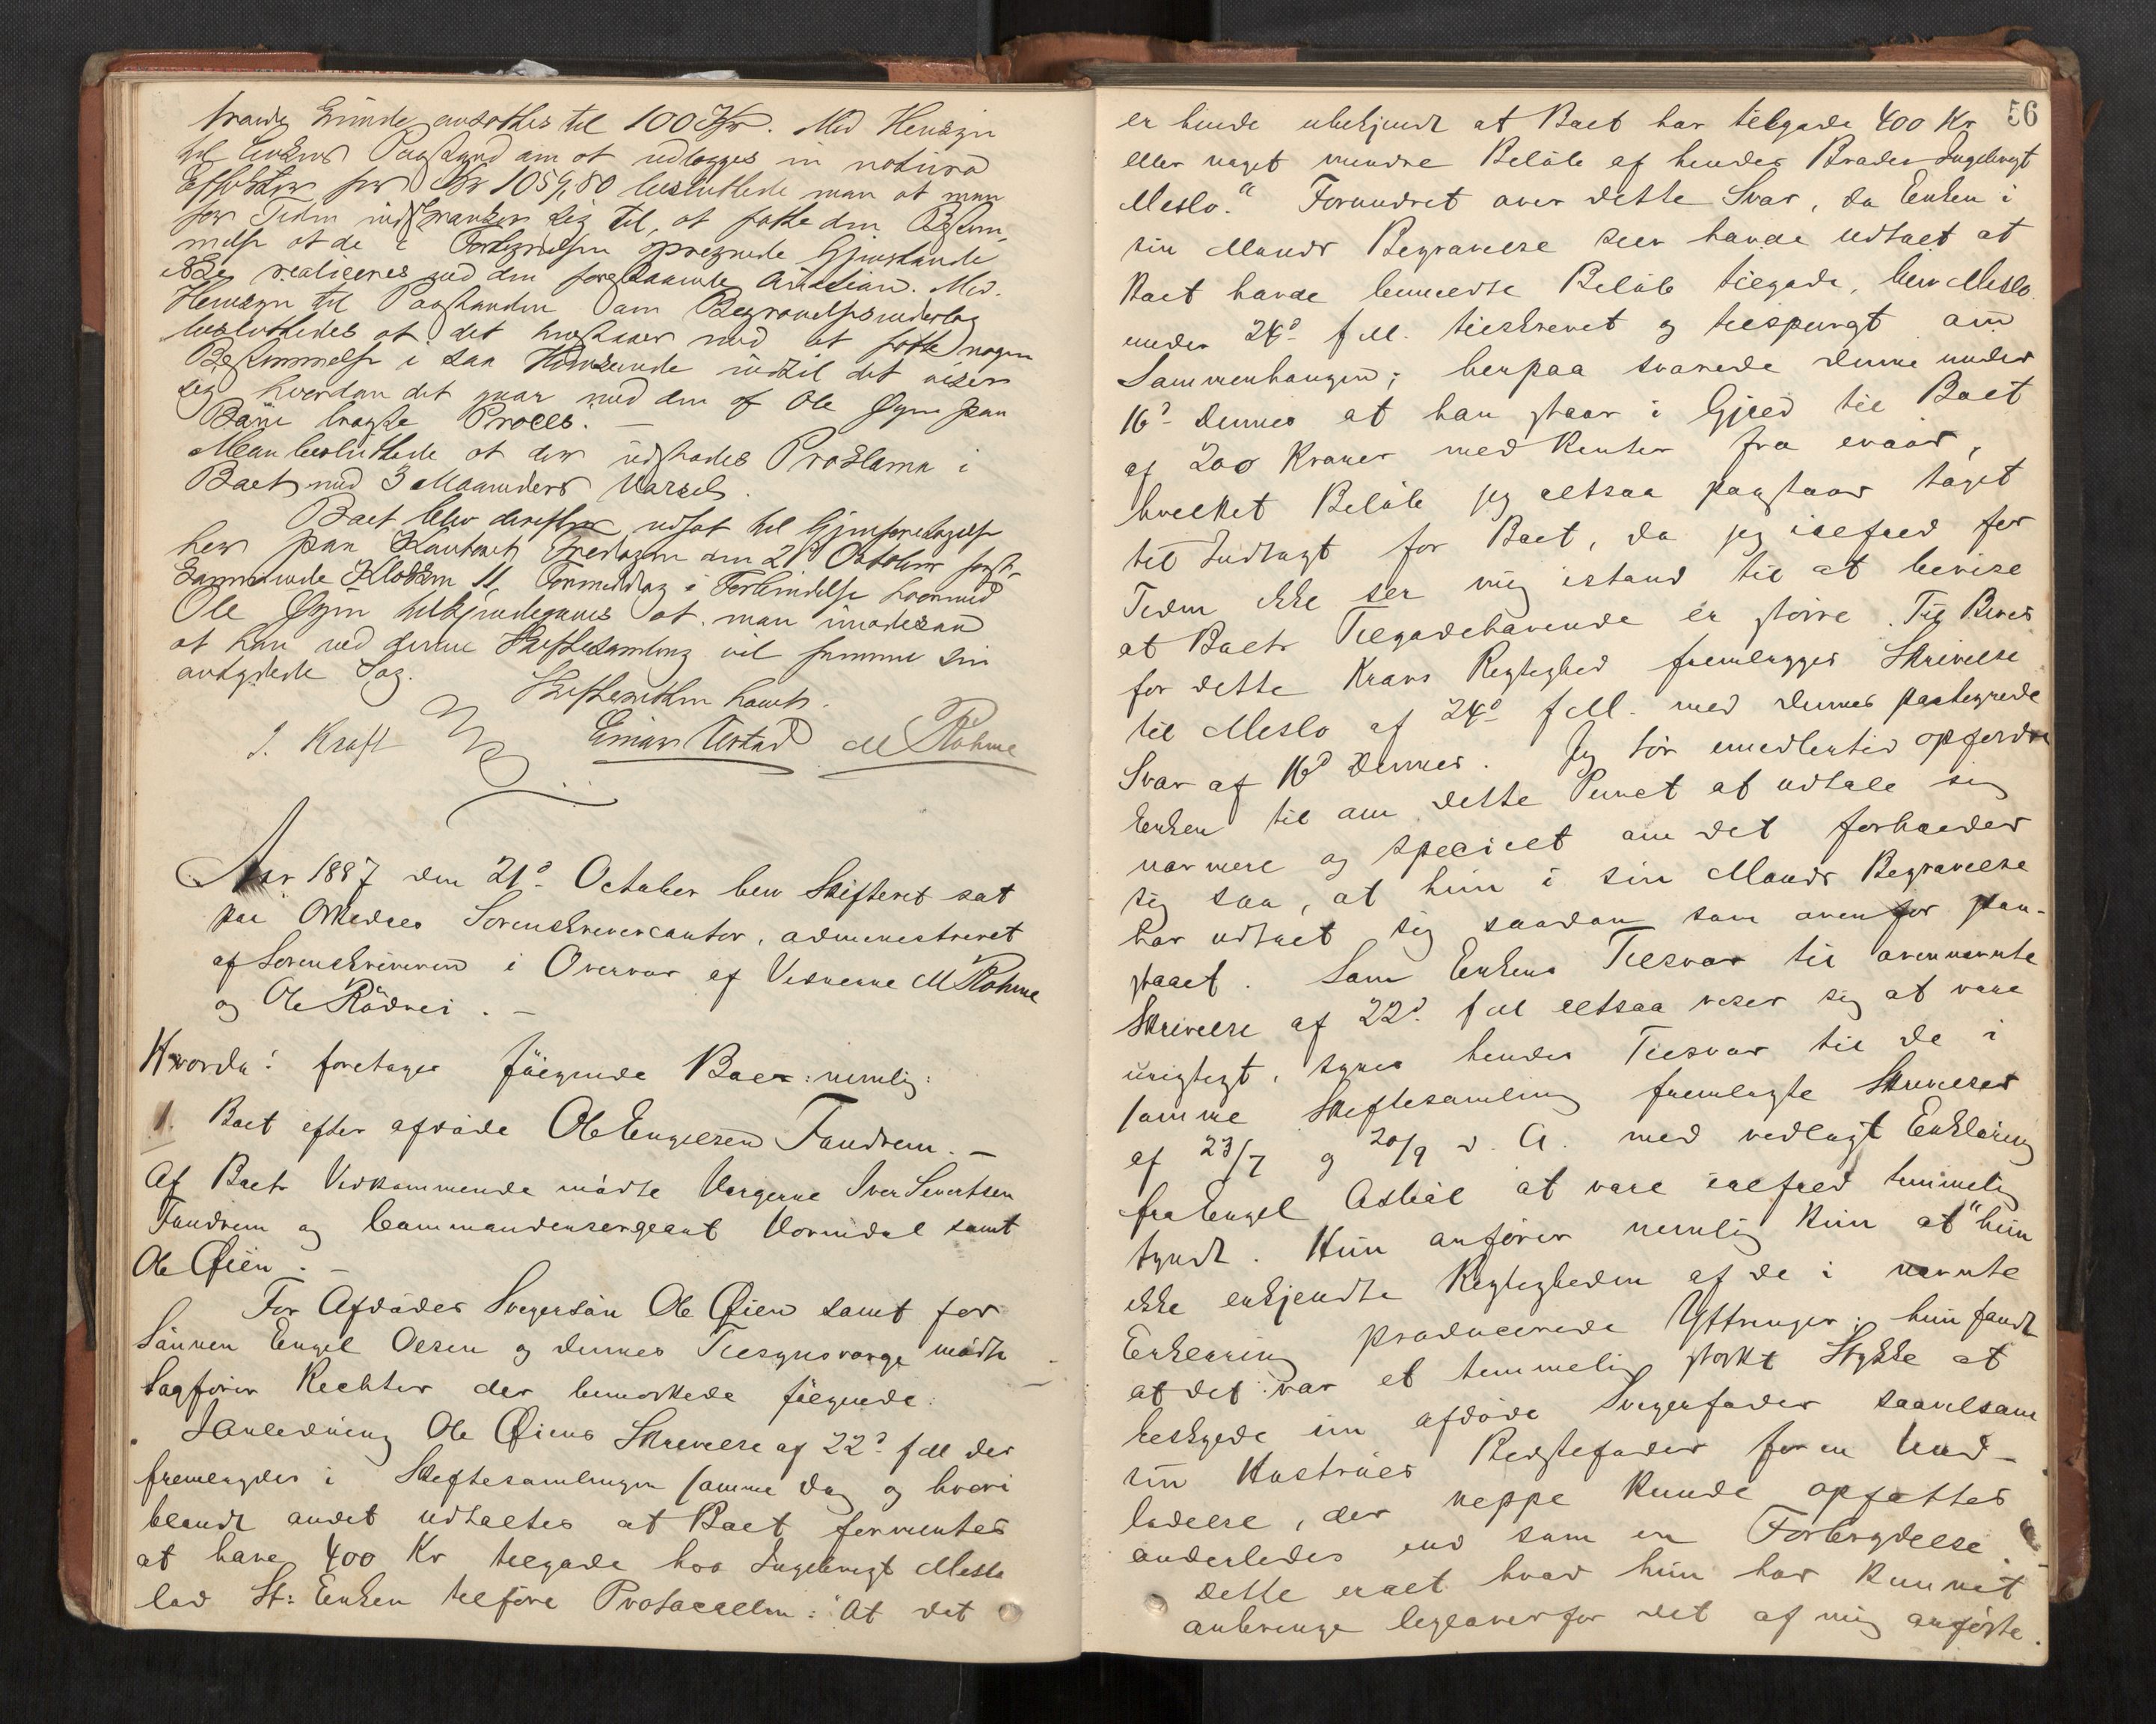 Grunde ansattes til 100 Kr. Med Hensyn
til Enkens Paastand om at udlægges in natura
Effekter for Kr 1059,80 besluttede man at man
for Tiden indskrænker sig til, at fatte den Bestem-
melse at de i Fortegnelsen opregnede Gjenstande
ikke realiseres ved den forestaaende Auktion. Med
Hensyn til Paastanden om Begravelsesudlæg
besluttedes at det udstaar med at fatte nogen
Bestemmelse i saa Henseende indtil det viser
sig hvordan det gaar med den af Ole Øyen paa
Boni bragte Proces. —
Man besluttede at der udstædes Proklama i
Boet med 3 Maaneders Varsel.
Boet blev derefter udsat til Gjenforetagelse
her paa Kontoret Fredagen den 21d Oktober først-
kommende Klokken 11 Formiddag i Forbindelse hvormed
Ole Øyen tilkjendegaves at man imødesaa
at han ved denne Skiftesamling vil fremme sin
antydede Sag.
Skifteretten hævet.
J. Kraft Einar Ustad M Rohme
Aar 1887 den 21d October blev Skifteret sat
paa Orkedals Sorenskrivercontor, administreret
af Sorenskriveren i Overvær af Vidnerne M Rohme
og Ole Rödvei. —
Hvorda: foretages følgende Boer: nemlig:
1. Boet efter afdøde Ole Engelsen Fandrem. —
Af Boets Vedkommende mødte Værgerne Iver Sivertsen
Fandrem og Commandersergeant Vormdal samt
Ole Øien. —
For Afdødes Svigersøn Ole Øien samt for
Sønnen Engel Olsen og dennes Tilsynsværge mødte
Sagfører Richter der bemærkede følgende:
I Anledning Ole Øiens Skrivelse af 22d f M der
fremlagdes i Skiftesamlingen samme Dag og hvori
blandt andet udtaltes at Boet formentes
at have 400 Kr tilgode hos Ingebrigt Meslo
lod St: Enken tilføre Protocollen: "At det
56
er hende ubekjendt at Boet har tilgode 400 Kr
eller noget mindre Beløb af hendes Broder Ingebrigt
Meslo." Forundret over dette Svar, da Enken i
sin Mands Begravelse skal havde udtalt at
Boet havde bemeldte Beløb tilgode, blev Meslo
under 24d f M. tilskrevet og tilspurgt om
Sammenhængen; herpaa svarede denne under
16d dennes at han staar i Gjæld til Boet
af 200 Kroner med Renter fra ivaar,
hvilket Beløb jeg altsaa paastaar taget
til Indtægt for Boet, da jeg ialfald for
Tiden ikke ser mig istand til at bevise
at Boets Tilgodehavende er større. Til Bevis
for dette Kravs Rigtighed fremlægges Skrivelse
til Meslo af 24d f M. med dennes paategnede
Svar af 16d dennes. Jeg tør imidlertid opfordre
Enken til om dette Punct at udtale sig
nærmere og specielt om det forholder
sig saa, at hun i sin Mands Begravelse
har udtalt sig saadan som ovenfor paa-
staaet. Som Enkens Tilsvar til ovennævnte
Skrivelse af 22d f M altsaa viser sig at være
urigtigt, synes hendes Tilsvar til de i
samme Skiftesamling fremlagte Skrivelser
af 23/7 og 20/9 d. A. med vedlagt Erklæring
fra Engel Asbøl at være ialfald temmelig
tyndt. Hun anfører nemlig kun at "hun
ikke erkjendte Rigtigheden af de i nævnte
Erklæring producerede Yttringer; hun fandt
at det var et temmelig stærkt Stykke at
beskylde sin afdøde Svigerfader saavelsom
sin Hustrues Bedstefader for en Und-
ladelse, der neppe kunde opfattes
anderledes end som en Forbrydelse.
Dette er alt hvad hun har kunnet
anbringe ligeoverfor det af mig anførte.